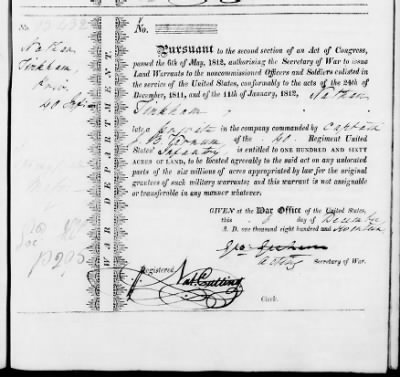 No.
Nathan
Tinkham
Priv.
40 Inf
WAR DEPARTMENT.
No.
Pursuant to the second section of an Act of Congress,
passed the 6th of May, 1812, authorising the Secretary of War to issue
Land Warrants to the noncommissioned Officers and Soldiers enlisted in
the service of the United States, conformably to the acts of the 24th of
December, 1811, and of the 11th of January, 1812, Nathan
Tinkham
late a private in the company commanded by Captain
of the 40 Regiment United
States' Infantry is entitled to ONE HUNDRED and SIXTY
ACRES OF LAND, to be located agreeably to the said act on any unlocated
parts of the six millions of acres appropriated by law for the original
grantees of such military warrants; and this warrant is not assignable
or transferable in any manner whatever.
GIVEN at the War Office of the United States,
this day of December
A. D. one thousand eight hundred and
Geo Graham
acting Secretary of War.
Registered Nat. Cutting
Clerk.